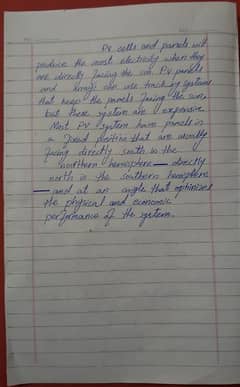 PV cells and panels will
produce the most electricity when they
are directly facing the sun. PV panels
and arrays can use tracking systems
that keep the panels facing the sun,
but these systems are expensive.
Most PV system have panels in
a fixed position that are usually
facing directly south in the
northern hemisphere — directly
north in the southern hemisphere
— and at an angle that optimizes
the physical and economic
performance of the system.